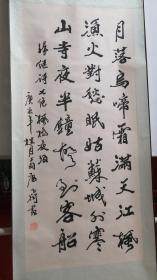 月落烏啼霜滿天江楓
漁火對愁眠姑蘇城外寒
山寺夜半鐘聲到客船
張繼詩文儿楓橋夜泊
庚辰年桂月